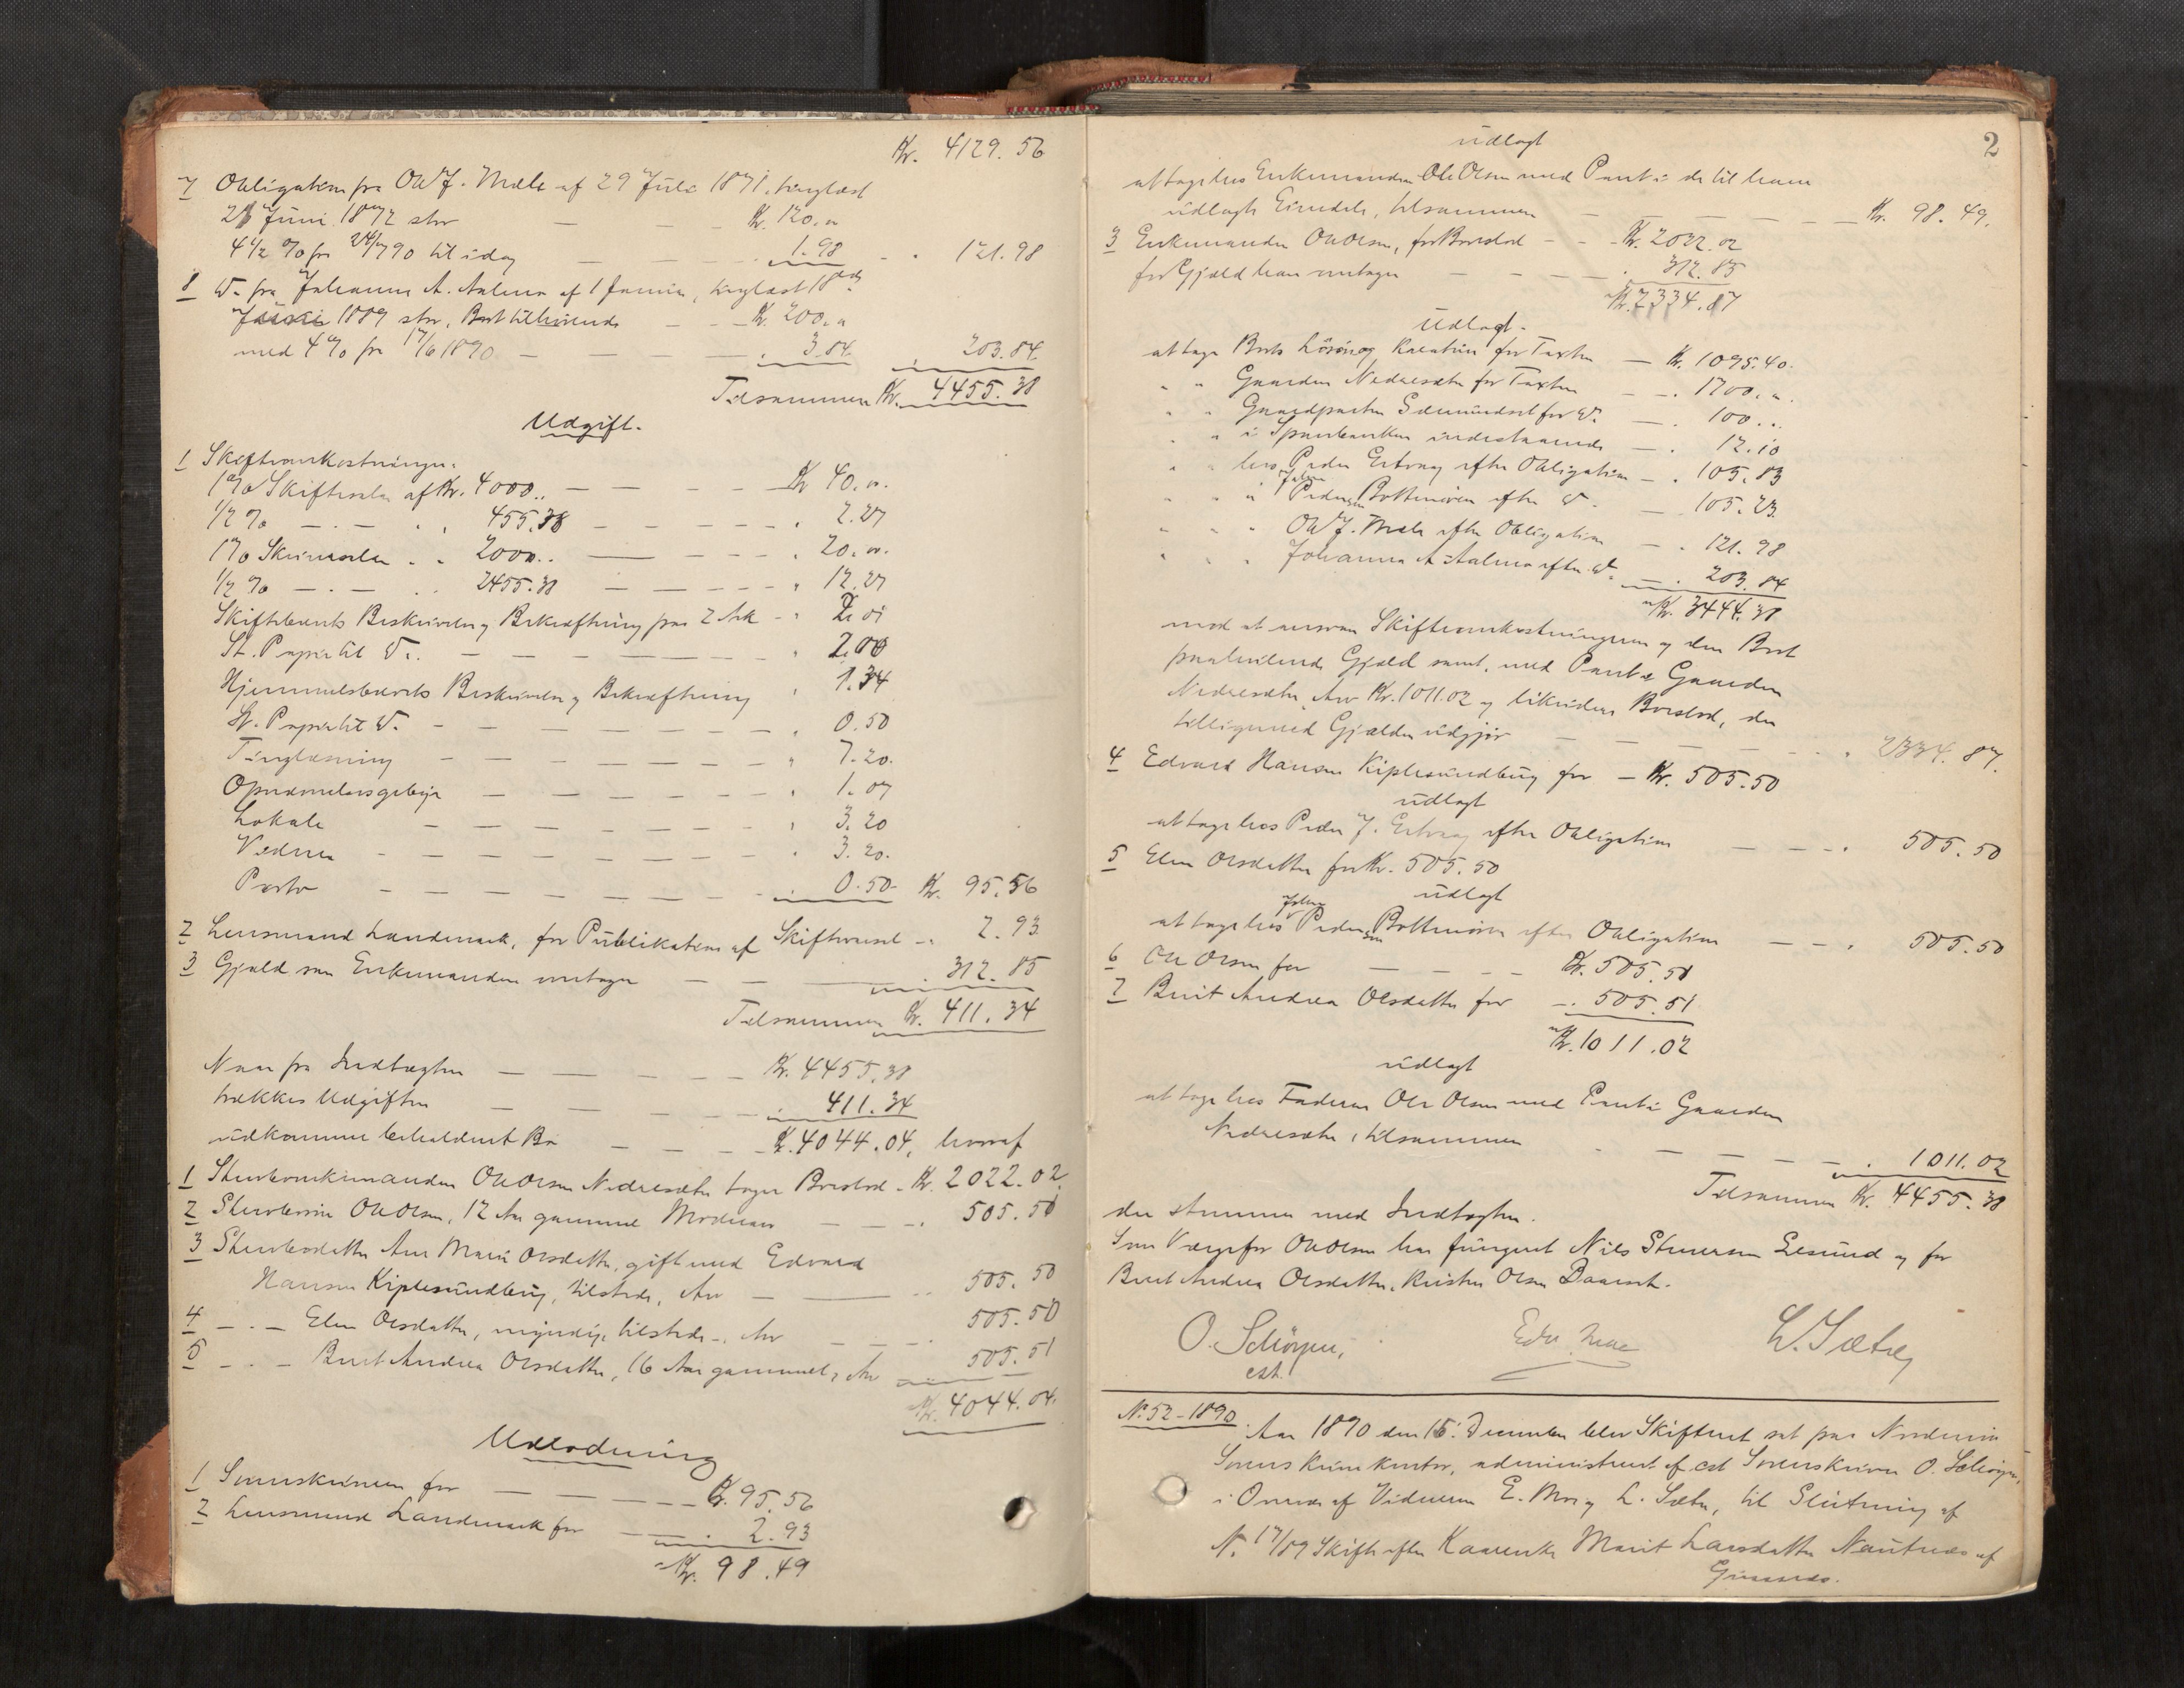 Kr. 4129.56
7 Obligation fra Ole J. Mæle af 29 Juli 1871, tinglæst
26 Juni 1872 stor — Kr. 120."
4 1/2 % fra 24/7 90 til idag — 1.98 . 121.98
8 Do fra Johanne A. Aalmo af 1 Juni, tinglæst 18de
1889 stor, Boet tilhørende — Kr. 200."
med 4 % fra 17/6 1890 — 3.84 . 203.84
Tilsammen Kr. 4455.38
Udgift.
1 Skifteomkostninger:
1 % Skiftesalær af Kr. 4000.. — Kr 40.".
1/2 % — . — . . 455.38 — . 2.27
1 % Skrivesalær . . 2000.. — . 20.".
1/2 % — . — . . 2455.38 — . 12.27
Skiftebrevets Beskrivelse og Bekræftning paa 2 Ark - . 2.01
St. Papir til Do. — . 2.00
Hjemmelsbrevets Beskrivelse og Bekræftning . 1.34
St. Papir til Do. — . 0.50
Tinglæsning — . 7.20.
Opnævnelsesgebyr — . 1.07
Lokale — . 3.20
Vidner — . 3.20.
Porto — . 0.50 Kr. 95.56
2 Lensmand Landmark, for Publikation af Skiftevarsel — . 2.93
3 Gjæld som Enkemanden modtager — . 312.85
Tilsammen Kr. 411.34
Naar fra Indtægten — Kr. 4455.38
trækkes Udgiften — . 411.34
udkommer beholdent Bo — Kr. 4044.04, hvoraf
1 Stervboenkemanden Ole Olsen Nedresæter tager Boeslod - Kr. 2022.02.
2 Stervbosøn Ole Olsen, 12 Aar gammel Mødrearv — . 505.50
3 Stervbodatter Ane Marie Olsdatter, gift med Edvard
Hansen Kiplesundbug, tilstede, Arv — . 505.50
4 — . — Elen Olsdatter, myndig, tilstede -, Arv — . 505.50
5 — . — Berit Andrea Olsdatter, 16 Aar gammel, Arv 505.51
Kr. 4044.04.
Udlodning
1 Sorenskriveren for — Kr. 95.56
2 Lensmand Landmark for — . 2.93
Kr. 98.49
2
udlagt
at tage hos Enkemanden Ole Olsen med Pant i de til ham
udlagte Eiendele, tilsammen — Kr. 98.49.
3 Enkemanden Ole Olsen, for Boeslod — Kr. 2022.02
for Gjæld han modtager — . 312.85
Kr. 2334.87
udlagt.
at tage Boets Løsøre og Kreaturer for Taxten — Kr. 1095.40.
" " Gaarden Nedresæter for Taxten — . 1700.".
" " Gaardparten Sæmundset for Do. — . 100..
" " i Sparebanken indestaaende — . 12.10
" " hos Peder Ertvaag efter Obligation — . 105.83
" " " Peder Johnsen Bottenviken efter Do. — 105.23.
" " " Ole J. Mæle efter Obligation — . 121.98
" " " Johanne A. Aalmo efter Do. — . 203.84
Kr. 3444.38
mod at svare Skifteomkostningerne og den Boet
paahvilende Gjæld samt, med Pant i Gaarden
Nedresæter, Arv Kr. 1011.02 og likvidere Boeslod, der
tilligemed Gjælden udgjør — . 2334.87.
4 Edvard Hansen Kiplesundbug for — Kr. 505.50
udlagt
at tage hos Peder J. Ertvaag efter Obligation — . 505.50
5 Elen Olsdatter for Kr. 505.50
udlagt
at tage hos Peder Johnsen Bottenviken efter Obligation — . 505.50
6 Ole Olsen for — Kr. 505.51
7 Berit Andrea Olsdatter for — . 505.51
Kr. 1011.02
udlagt
at tage hos Faderen Ole Olsen med Pant i Gaarden
Nedresæter, tilsammen — . 1011.02
Tilsammen Kr. 4455.38
der stemmer med Indtægten.
Som Værge for Ole Olsen har fungeret Nils Steuersen Gesund og for
Berit Andrea Olsdatter, Kristen Olsen Daarset.
O. Schrøyen, Edv. Moe L. Sæter
cst.
No 52 - 1890. Aar 1890 den 15. December blev Skifteret sat paa Nordmør
Sorenskriverkontor, administreret af cst Sorenskriver O. Schrøyen,
i Overvær af Vidnerne E. Moe og L. Sæter, til Slutning af
No 17/89 Skifte efter Kaarenke Marit Larsdatter Nautnæs af